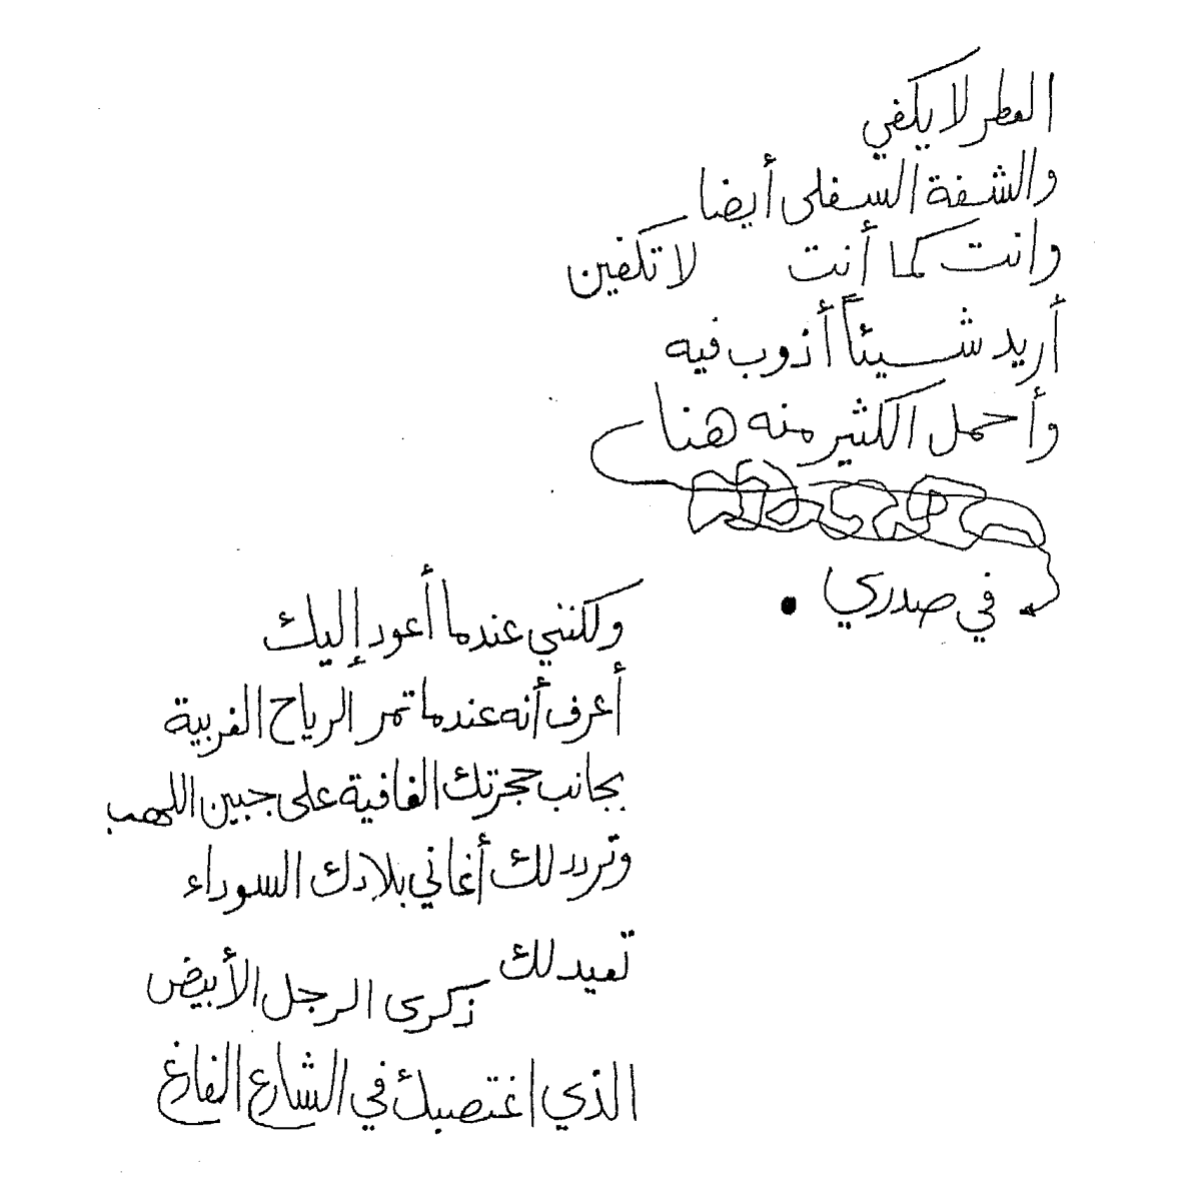 العطر لا يكفي
والشفة السفلى أيضا
وانت كما أنت لا تكفين
أريد شيئاً أذوب فيه
وأحمل الكثير منه هنا
في صدري .
ولكنني عندما أعود إليك
أعرف أنه عندما تمر الرياح الغربية
بجانب حجرتك الغافية على جبين اللهب
وتردد لك أغاني بلادك السوداء
تعيد لك
ذكرى الرجل الأبيض
الذي اغتصبك في الشارع الفارغ